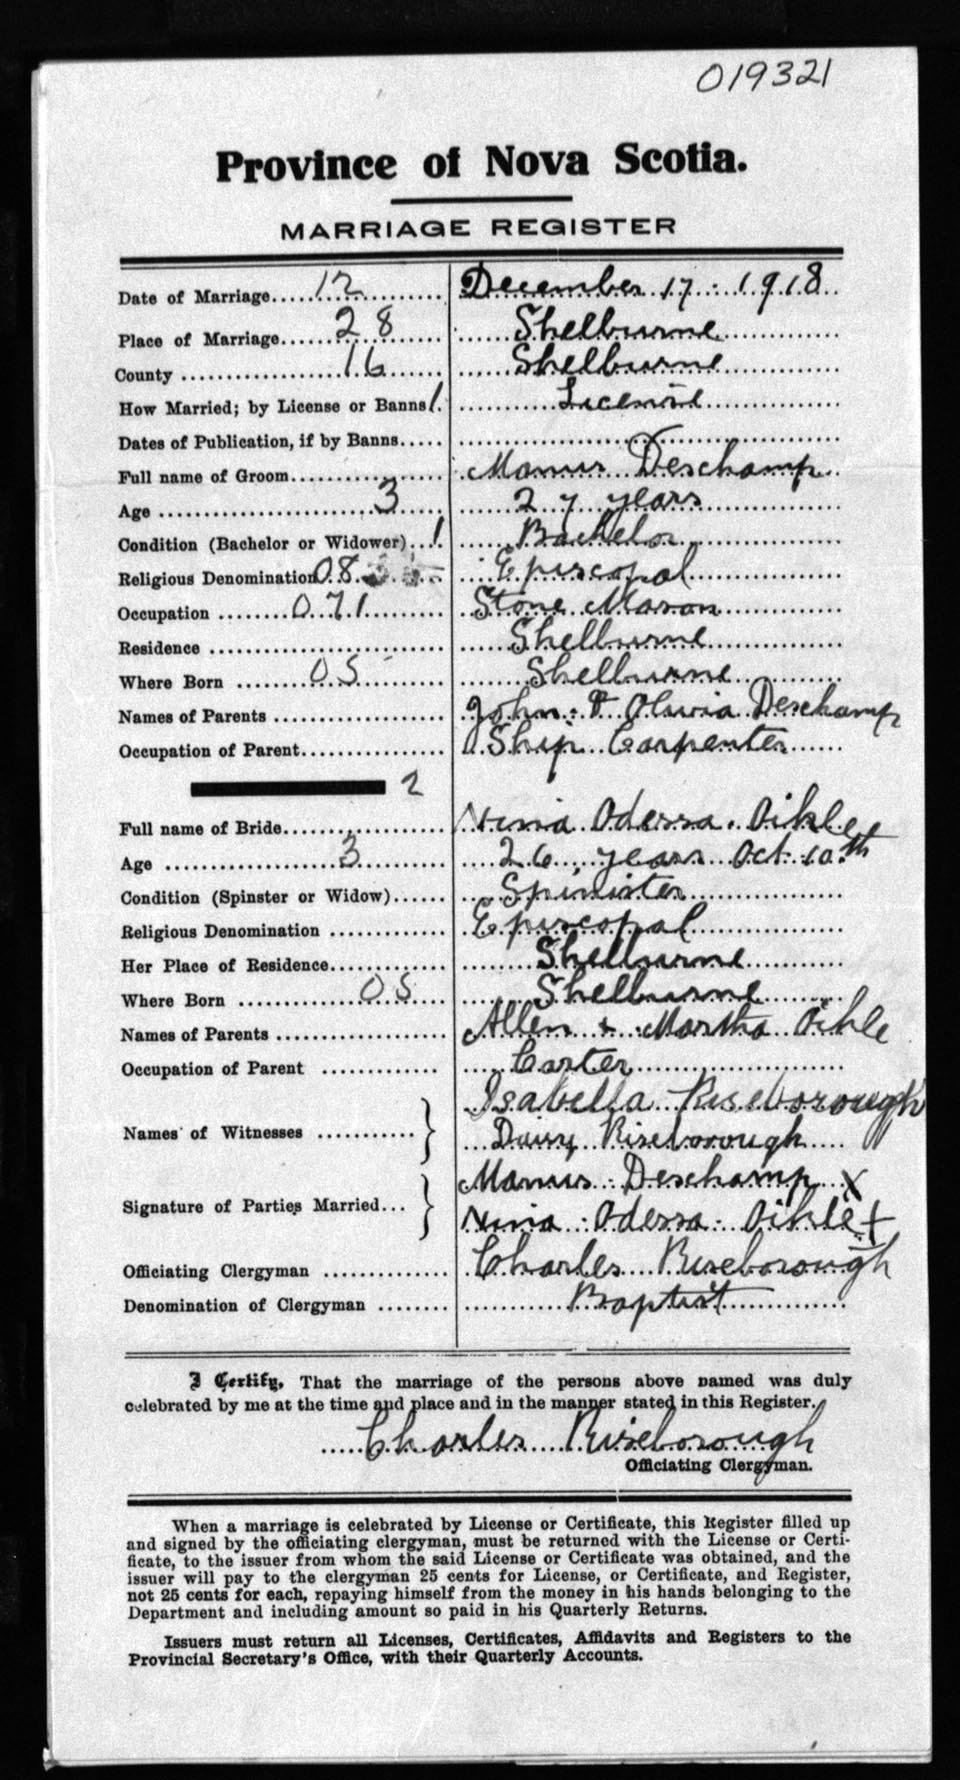 019321
Province of Nova Scotia.
MARRIAGE REGISTER
Date of Marriage....12.... December 17. 1918
Place of Marriage....28.... Shelburne
County ....16.... Shelburne
How Married; by License or Banns 1. License
Dates of Publication, if by Banns.....
Full name of Groom.... Manus Deschamp
Age ....3.... 27 years
Condition (Bachelor or Widower)...1. Bachelor
Religious Denomination 08 Episcopal
Occupation ....071.... Stone Mason
Residence .... Shelburne
Where Born ....05.... Shelburne
Names of Parents .... John & Olivia Deschamp
Occupation of Parent.... Ship Carpenter
2
Full name of Bride.... Nina Odessa Oikle
Age ....3.... 26 years Oct 10th
Condition (Spinster or Widow)...... Spinister
Religious Denomination .... Episcopal
Her Place of Residence.... Shelburne
Where Born ....05.... Shelburne
Names of Parents .... Allen & Martha Oikle
Occupation of Parent .... Carter
Isabella Riseborough
Names of Witnesses .... Daisy Riseborough
Manus Deschamp X
Signature of Parties Married... Nina Odessa Oikle +
Officiating Clergyman .... Charles Riseborough
Denomination of Clergyman .... Baptist
I Certify, That the marriage of the persons above named was duly
celebrated by me at the time and place and in the manner stated in this Register.
Charles Riseborough
Officiating Clergyman.
When a marriage is celebrated by License or Certificate, this Register filled up
and signed by the officiating clergyman, must be returned with the License or Certi-
ficate, to the issuer from whom the said License or Certificate was obtained, and the
issuer will pay to the clergyman 25 cents for License, or Certificate, and Register,
not 25 cents for each, repaying himself from the money in his hands belonging to the
Department and including amount so paid in his Quarterly Returns.
Issuers must return all Licenses, Certificates, Affidavits and Registers to the
Provincial Secretary's Office, with their Quarterly Accounts.